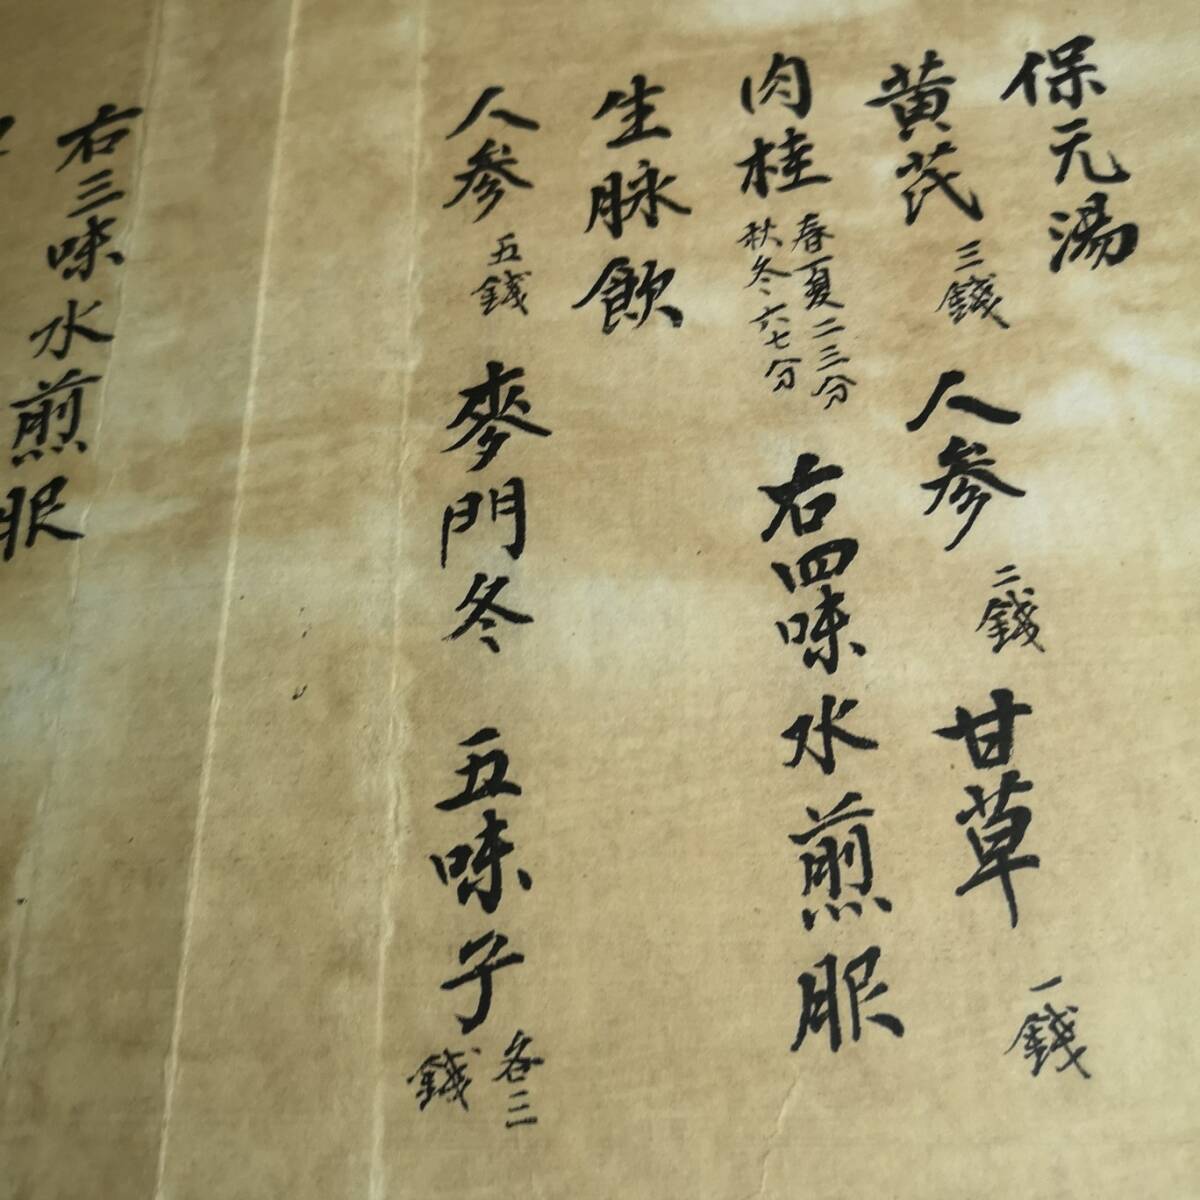 保元湯
黄芪 三錢 人参 二錢 甘草 一錢
肉桂 春夏二三分 秋冬六七分 右四味水煎服
生脉飲
人参 五錢 麥門冬 五味子 各三錢
右三味水煎服